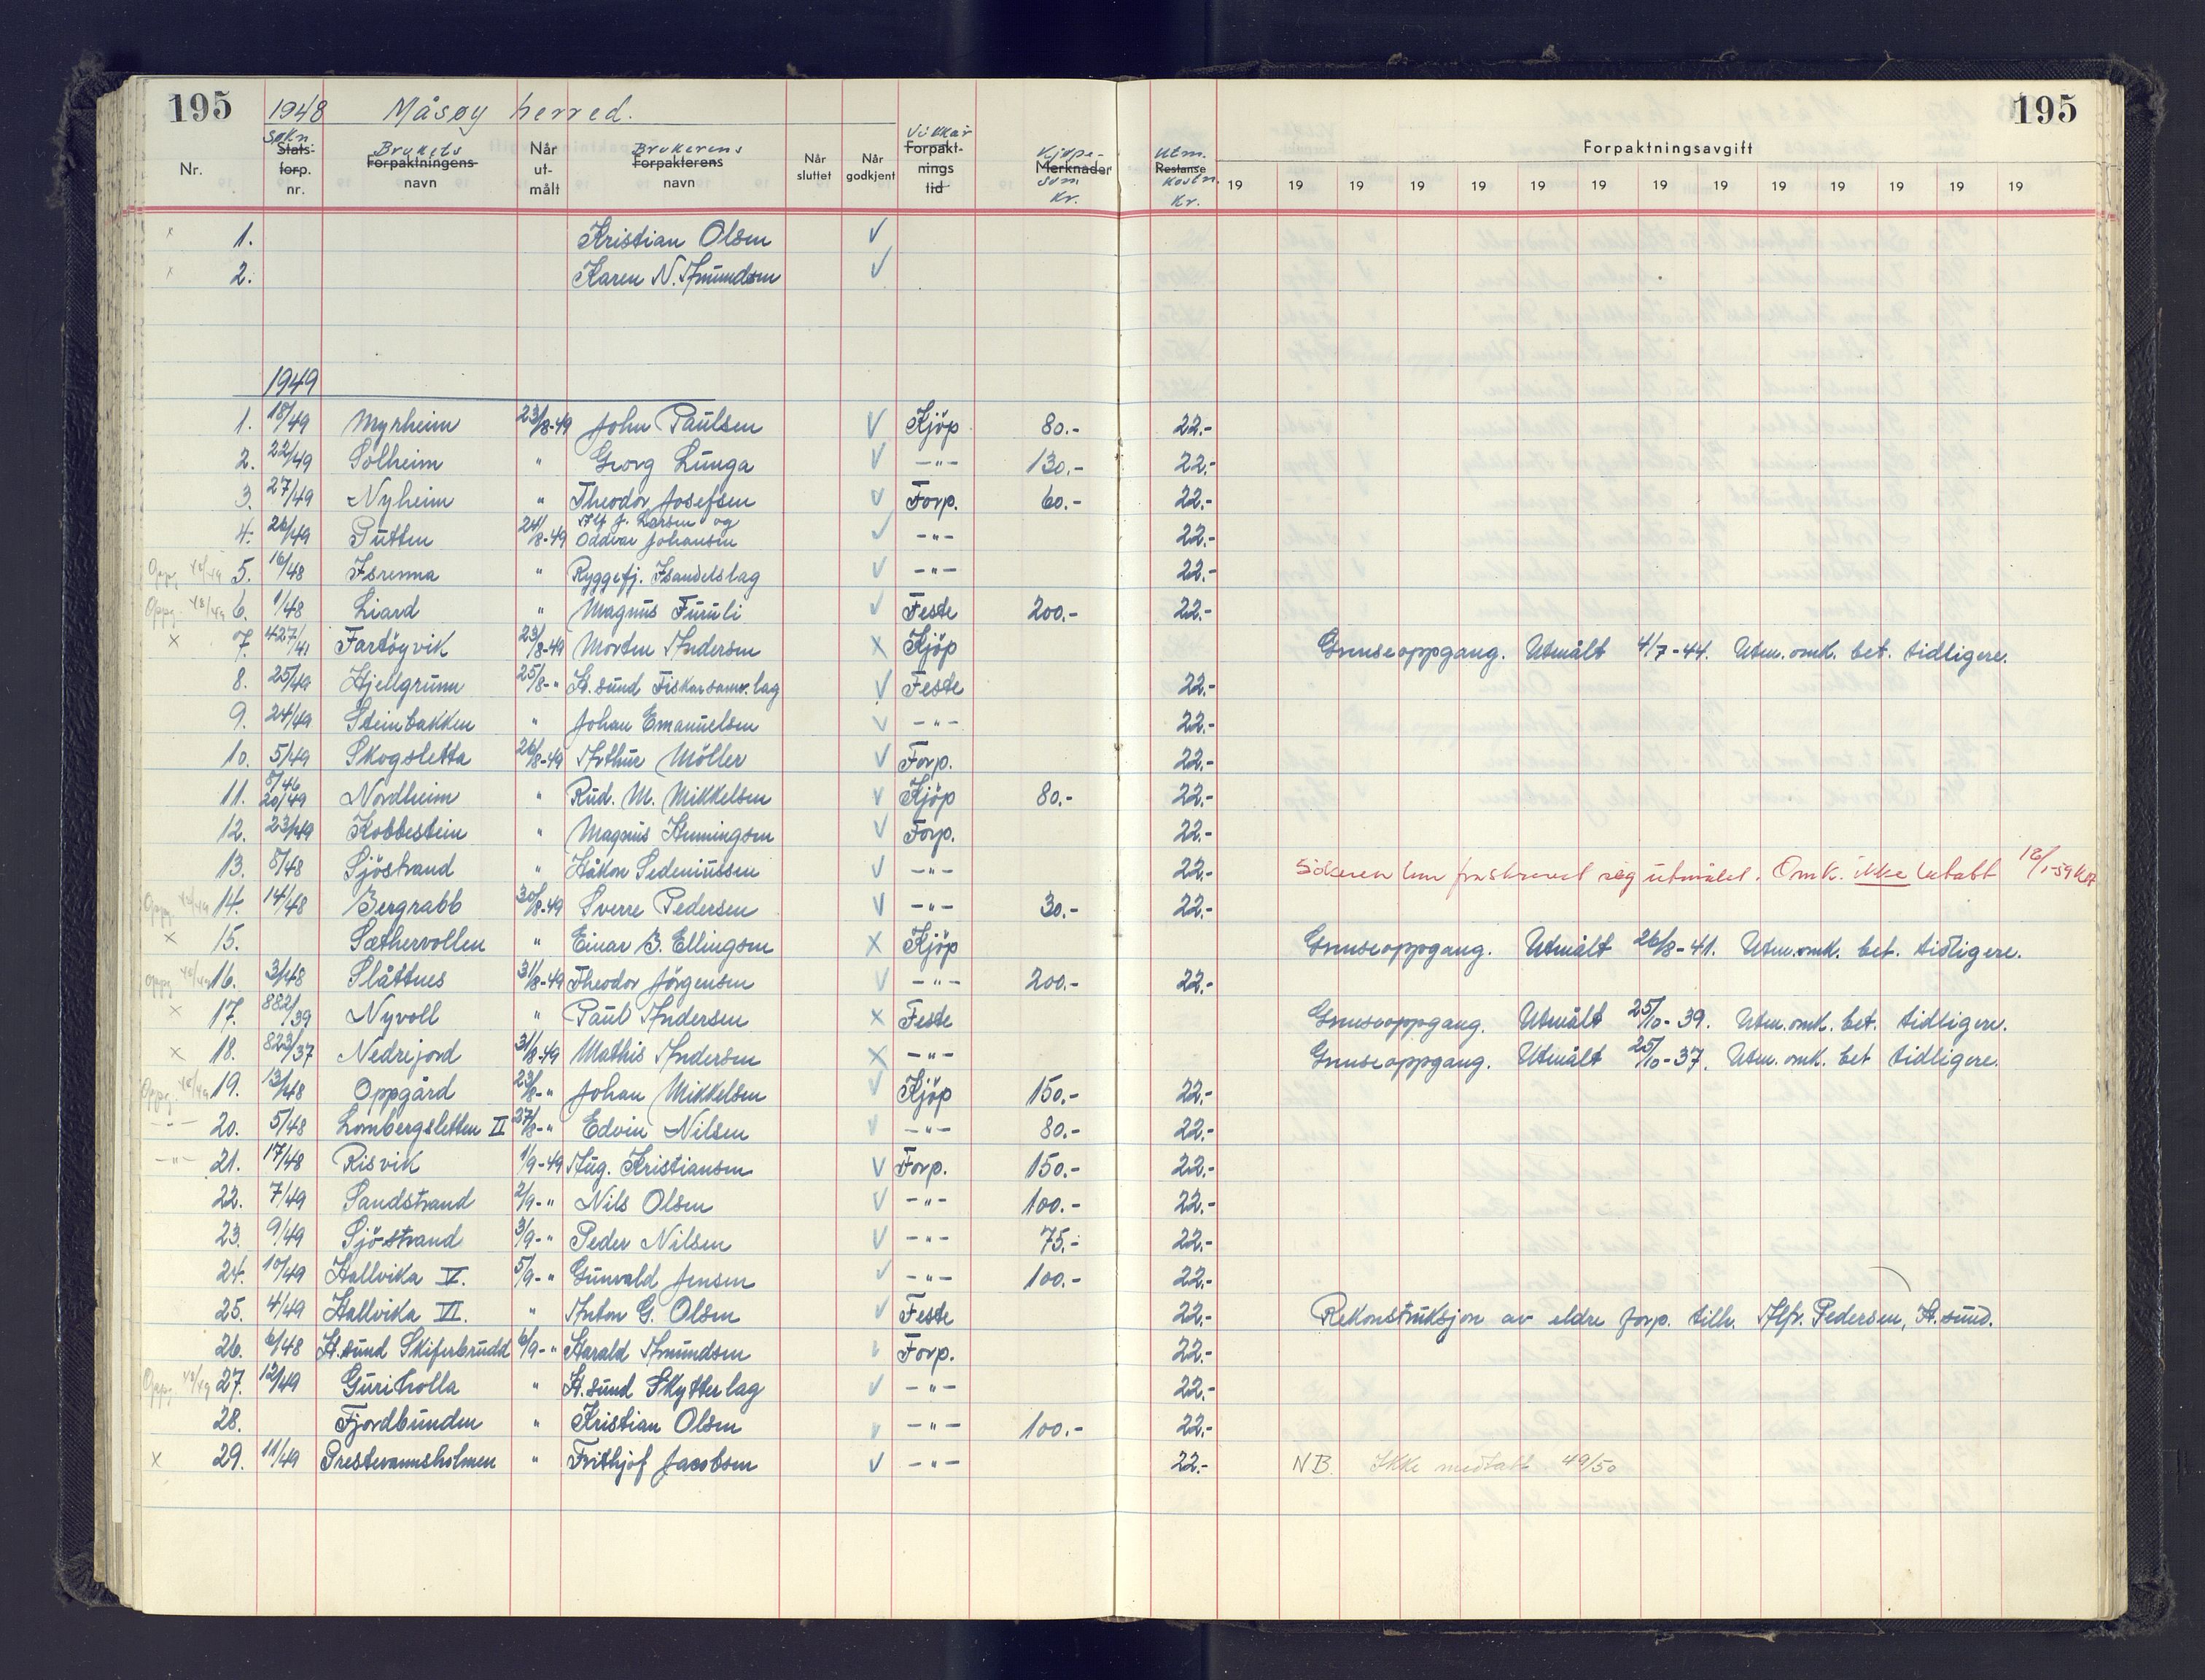 195 1948 Måsøy herred. 195
Nr. Søkn. Stats- forp. nr. Brukets Forpaktningens navn Når utmålt Brukerens Forpakterens navn Når sluttet Når godkjent Vilkår Forpaktnings tid Kjøpe- Merknader sum Kr. Utm. Restanse kostn. Kr. Forpaktningsavgift
19 19 19 19 19 19 19 19 19 19 19 19 19 19
x 1. Kristian Olsen V
x 2. Karen N. Amundsen V
1949
1. 18/49 Myrheim 23/8-49 John Paulsen V Kjöp 80.- 22.-
2. 22/49 Solheim " Georg Lunga V -"- 130.- 22.-
3. 27/49 Nyheim " Theodor Josefsen V Forp. 60.- 22.-
4. 26/49 Putten 24/8-49 Alf J. Larsen og Oddvar Johansen V -"- 22.-
Oppg. 48/49 5. 16/48 Isrenna " Ryggefj. Isandelslag V -"- 22.-
Oppg. 48/49 6. 1/48 Liard " Magnus Furuli V Feste 200.- 22.-
x 7. 427/41 Fartöyvik 23/8-49 Morten Andersen X Kjöp Grenseoppgang. Utmålt 4/7-44. Utm. omk. bet. tidligere.
8. 25/49 Hjellgrunn 25/8-" H.sund Fiskarsamv.lag V Feste 22.-
9. 24/49 Steinbakken " Johan Emanuelsen V -"- 22.-
10. 5/49 Skogsletta 26/8-49 Arthur Möller V Forp. 22.-
11. 8/46 20/49 Nordheim " Rud. M. Mikkelsen V Kjöp 80.- 22.-
12. 23/49 Kobbestein " Magnus Henningsen V Forp. 22.-
13. 8/48 Sjöstrand " Håkon Sedeniussen V -"- 22.- Sökeren har fraskrevet seg utmålet. Omk. ikke betalt
Oppg. 48/49 14. 14/48 Bergnabb 30/8-49 Sverre Pedersen V -"- 30.- 22.-
x 15. Sæthervollen " Einar B. Ellingsen X Kjöp Grenseoppgang. Utmålt 26/8-41. Utm. omk. bet. tidligere.
Oppg. 48/49 16. 3/48 Slåttnes 31/8-49 Theodor Jörgensen V -"- 200.- 22.-
x 17. 882/39 Nyvoll " Paul Andersen X Feste Grenseoppgang. Utmålt 25/10-39. Utm. omk. bet. tidligere.
x 18. 823/37 Nedrejord 31/8-49 Mathis Andersen X -"- Grenseoppgang. Utmålt 25/10-37. Utm. omk. bet tidligere.
Oppg. 48/49 19. 13/48 Oppgård 23/8-" Johan Mikkelsen V Kjöp 150.- 22.-
-"- 20. 5/48 Lombergsletten II 27/8-" Edvin Nilsen V -"- 80.- 22.-
-"- 21. 17/48 Risvik 1/9-49 Aug. Kristiansen V Forp. 150.- 22.-
22. 7/49 Sandstrand 2/9-" Nils Olsen V -"- 100.- 22.-
23. 9/49 Sjöstrand 3/9-" Peder Nilsen V -"- 75.- 22.-
24. 10/49 Hallvika V. 5/9-" Gunvald Jensen V -"- 100.- 22.-
25. 4/49 Hallvika VI. " Anton G. Olsen V Feste 22.- Rekonstruksjon av eldre forp. tilh. Alfr. Pedersen, H.sund.
26. 6/48 H.sund Skiferbrudd 6/9-" Harald Amundsen V Forp. 22.-
Oppg. 48/49 27. 12/49 Guriholla " H.sund Skytterlag V -"- 22.-
28. Fjordbunden " Kristian Olsen V -"- 100.- 22.-
x 29. 11/49 Prestevannsholmen " Frithjof Jacobsen V -"- 22.- NB. Ikke medtatt 49/50